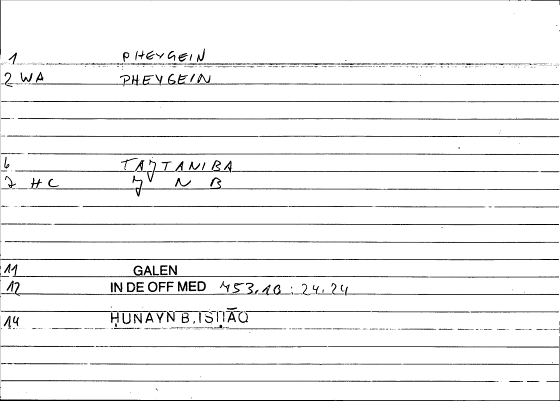 1 PHEYGEIN
2 WA PHEYGEIN
6 TAJTANIBA
7 HC J N B
11 GALEN
12 IN DE OFF MED 453,10 : 24,24
14 ḤUNAYN B. ISḤĀQ